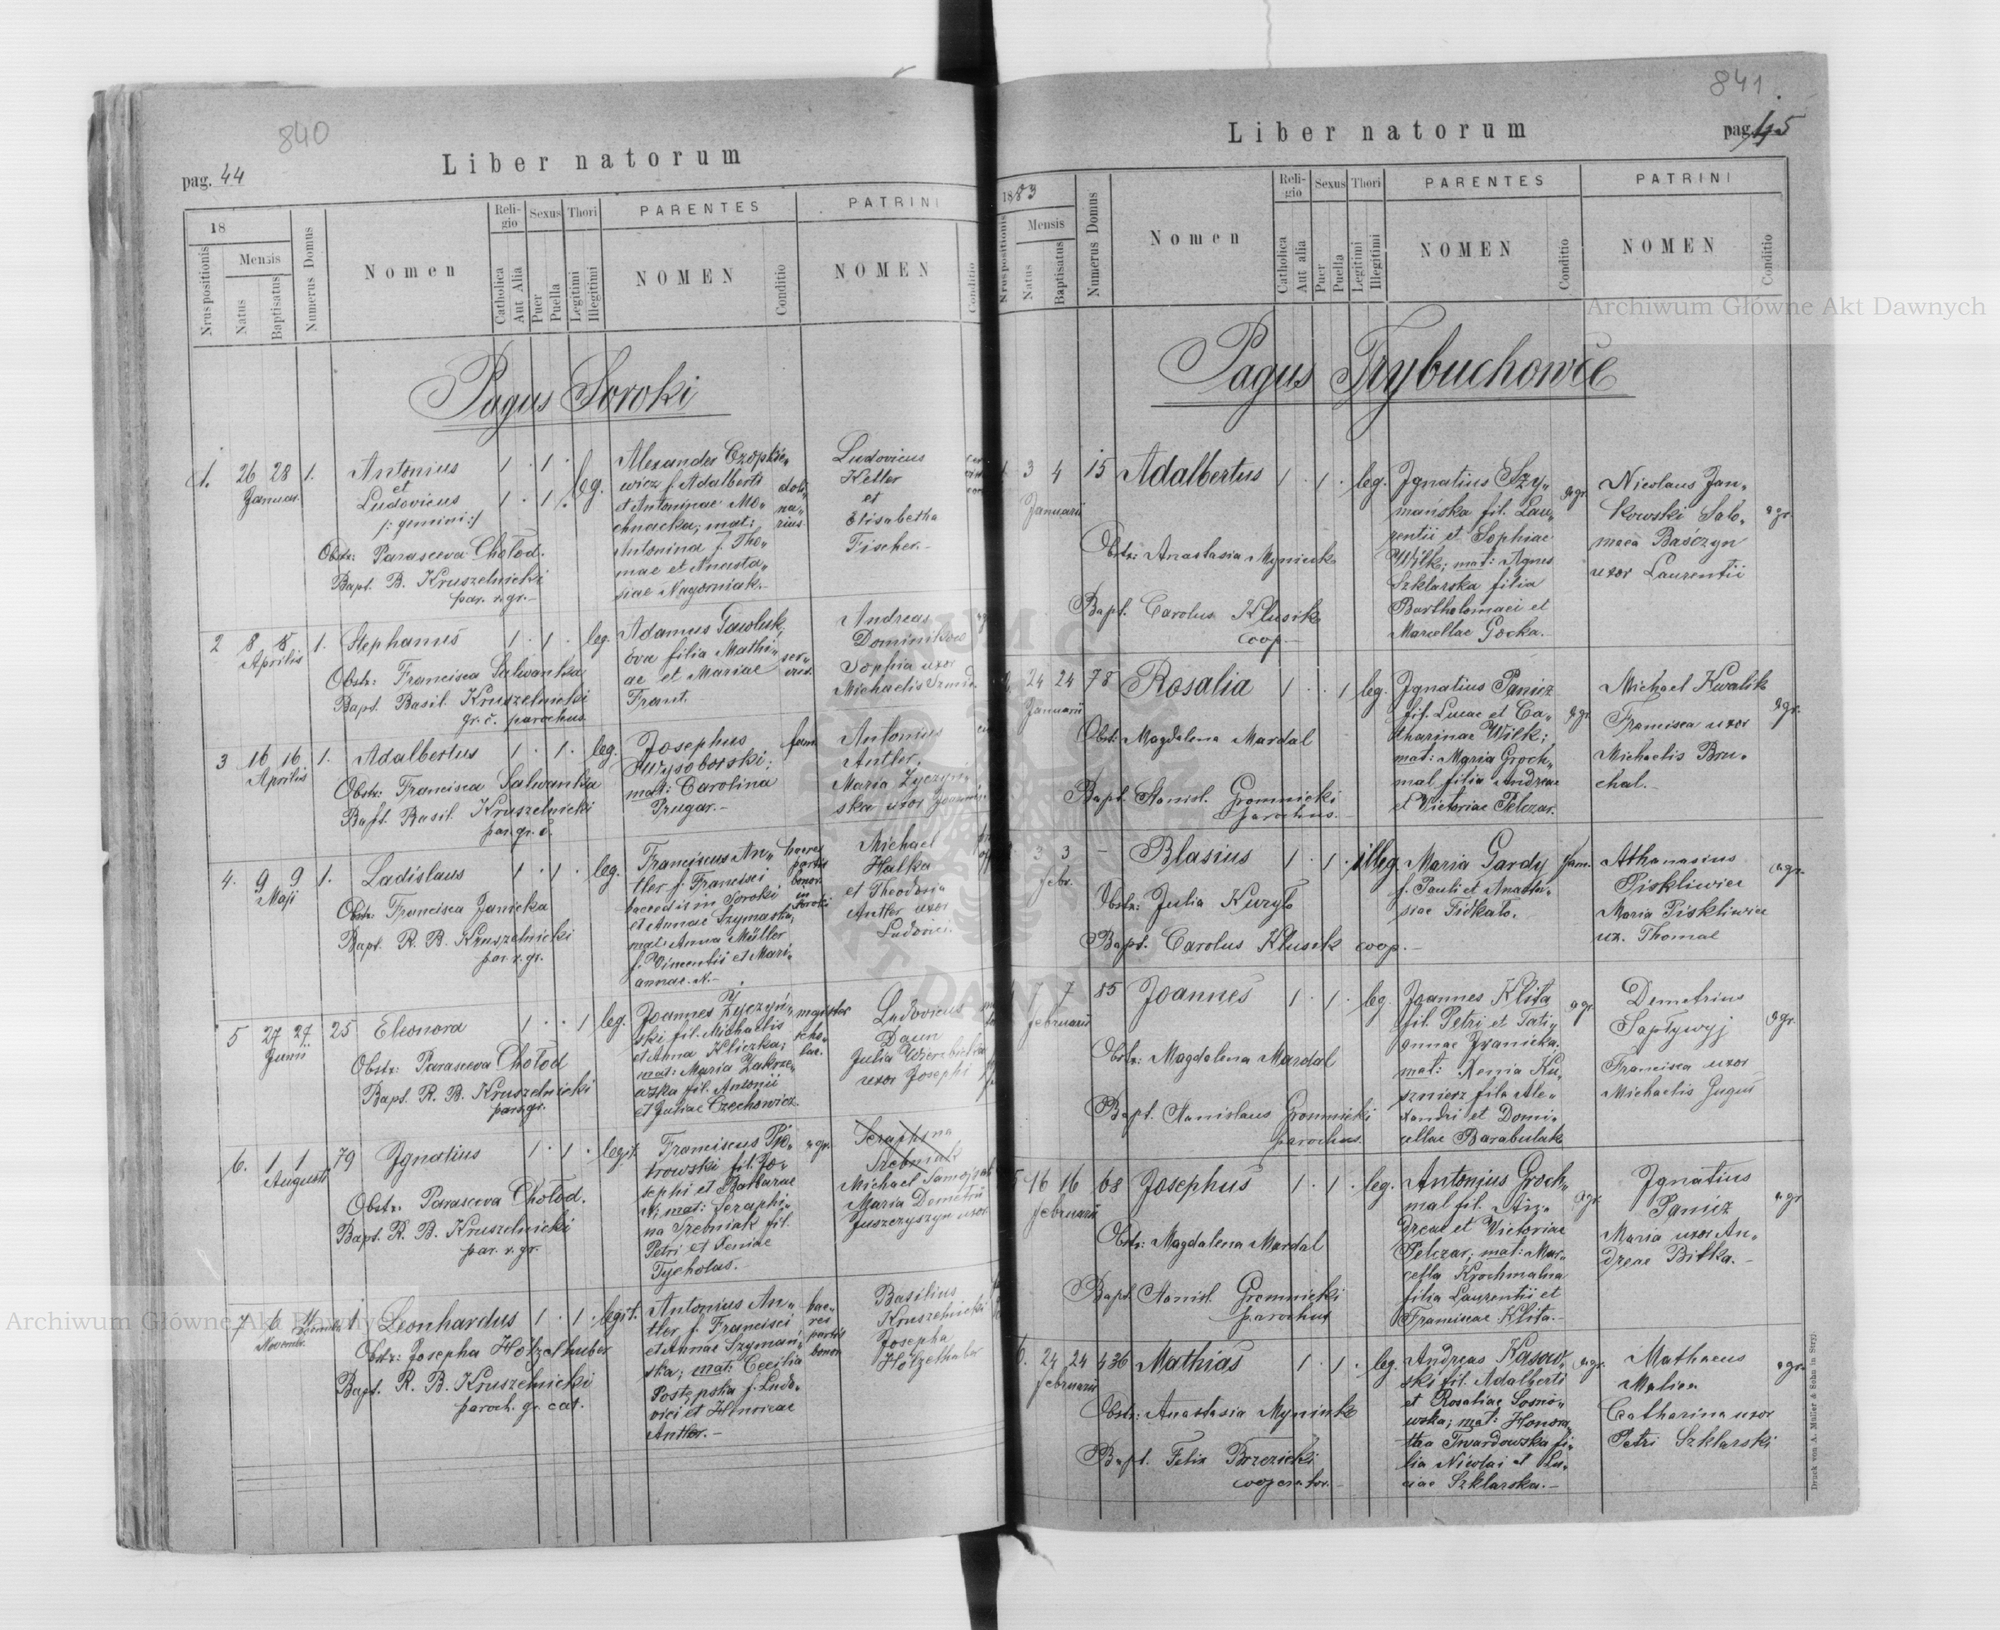 840
pag. 44
Liber natorum
18
Nrus positionis
Mensis
Natus
Baptisatus
Numerus Domus
Nomen
Religio
Catholica
Aut Alia
Sexus
Puer
Puella
Thori
Legitimi
Illegitimi
PARENTES
NOMEN
Conditio
PATRINI
NOMEN
Conditio
Pagus Soroki
1. 26 28 1. Antonius 1 · 1 ·
Januar. et
Ludovicus 1 · 1 leg.
/: gemini :/
Obstr: Parasceva Chołod.
Bapt. B. Kruszelnicki
par. r. gr.
Alexander Czopkie-
wicz f. Adalberti
et Antoninae Mo-
chnacka; mat:
Antonina f. Tho-
mae et Anasta-
siae Nagórniak.
Ludovicus
Keller
et
Elisabetha
Fischer.
2 8 8 1. Stephanus 1 · 1 · leg.
Aprilis
Obstr: Francisca Salwanka
Bapt. Basil. Kruszelnicki
gr. c. parochus.
Adamus Gawluk,
Eva filia Mathi-
ae et Mariae
Frant.
Andreas
Sophia uxor
Michaelis
3 16 16 1. Adalbertus 1 · 1 · leg.
Aprilis
Obstr: Francisca Salwanka
Bapt. Basil. Kruszelnicki
par. gr. c.
Josephus
Wysoborski;
mat: Carolina
Prugar.
Antonius
Antler.
Maria Zyczyn-
ska uxor
4. 9 9 1. Ladislaus 1 · 1 · leg.
Maji
Obstr: Francisca Janicka
Bapt. R. B. Kruszelnicki
par. r. gr.
Franciscus An-
tler f. Francisci
in Soroki
et Annae Szymańska,
mat: Anna Müller
f. Vincentii et Mari-
annae N.
Michael
Halka
et Theodosia
Antler uxor
Ludovici.
5 27 27 25 Eleonora 1 · · 1 leg.
Junii
Obstr: Parasceva Chołod
Bapt. R. B. Kruszelnicki
par. gr.
Joannes Zyczyń-
ski fil. Michaelis
et Anna Kliczka;
mat: Maria Zakrze-
wska fil. Antonii
et Juliae Czechowicz.
magister
scho-
lar.
Ludovicus
Daun
Julia Wierzbicka
uxor Josephi
6. 1 1 79 Ignatius 1 · 1 · legit.
Augusti
Obstr. Parasceva Chołod.
Bapt. R. B. Kruszelnicki
par. r. gr.
Franciscus Pio-
trowski fil. Jo-
sephi et Barbarae
N; mat: Seraphi-
na Srebniak fil.
Petri et Xeniae
Tycholus.
agr.
Seraphina
Srebniak
Michael
Maria Demetrii
Juszczyszyn uxor
7 6 1 Leonhardus 1 · 1 · legit.
Novembr.
Obstr: Josepha Holzelhuber
Bapt. R. B. Kruszelnicki
paroch. gr. cat.
Antonius An-
tler f. Francisci
et Annae Szymań-
ska; mat: Cecilia
Postępska f. Ludo-
vici et Honoratae
Antler.
hae-
res
partis
bonor.
Basilius
Kruszelnicki
Josepha
841
Liber natorum
pag. 45
1883
Nrus positionis
Mensis
Natus
Baptisatus
Numerus Domus
Nomen
Religio
Catholica
Aut alia
Sexus
Puer
Puella
Thori
Legitimi
Illegitimi
PARENTES
NOMEN
Conditio
PATRINI
NOMEN
Conditio
Pagus Trybuchowce
1 3 4 15 Adalbertus 1 · 1 · leg.
Januarii
Obstr: Anastasia Myniuk
Bapt. Carolus Klusik
coop.
Ignatius Szy-
mańska fil. Lau-
rentii et Sophiae
Wilk; mat: Agnes
Szklarska filia
Bartholomaei et
Marcellae Gocka.
agr.
Nicolaus Jan-
kowski Salo-
mea Baśczyn
uxor Laurentii
agr.
24 24 78 Rosalia 1 · · 1 leg.
Januarii
Obstr: Magdalena Mardal
Bapt. Stanisl. Gromnicki
parochus.
Ignatius Panicz
fil. Lucae et Ca-
tharinae Wilk;
mat: Maria Groch-
mal filia Andreae
et Victoriae Pelczar.
agr.
Michael Kwalik
Francisca uxor
Michaelis Bru-
chal.
agr.
3 3 - Blasius 1 · 1 · illeg.
febr.
Obstr: Julia Kuryło
Bapt. Carolus Klusik coop.
Maria Gardy
f. Pauli et Anasta-
siae Fidkało.
fam.
Athanasius
Piskliwiec
Maria Piskliwiec
ux. Thomae
agr.
7 7 85 Joannes 1 · 1 · leg.
februarii
Obstr: Magdalena Mardal
Bapt. Stanislaus Gromnicki
parochus.
Joannes Klita
fil. Petri et Tati-
annae Iwanicka.
mat: Xenia Ku-
sznierz filia Ale-
xandri et Domi-
cellae Barabulak
agr.
Demetrius
Sapływyj
Francisca uxor
Michaelis Juguś
agr.
5 16 16 68 Josephus 1 · 1 · leg.
februarii
Obstr: Magdalena Mardal
Bapt. Stanisl. Gromnicki
parochus
Antonius Groch-
mal fil. An-
dreae et Victoriae
Pelczar; mat: Mar-
cella Krochmalna
filia Laurentii et
Franciscae Klita.
agr.
Ignatius
Panicz
Maria uxor An-
dreae Bitka.
agr
6. 24 24 436 Mathias 1 · 1 · leg.
februarii
Obstr: Anastasia Myniuk
Bapt. Felix Brzezicki
cooperator.
Andreas Kasow-
ski fil. Adalberti
et Rosaliae Sosno-
wska; mat: Honora-
tha Twardowska fi-
lia Nicolai et Lu-
ciae Szklarska.
agr.
Mathaeus
Malina
Catharina uxor
Petri Szklarski
agr.
Druck von A. Müller & Sohn in Stryj.
Archiwum Główne Akt Dawnych
Archiwum Główne Akt Dawnych